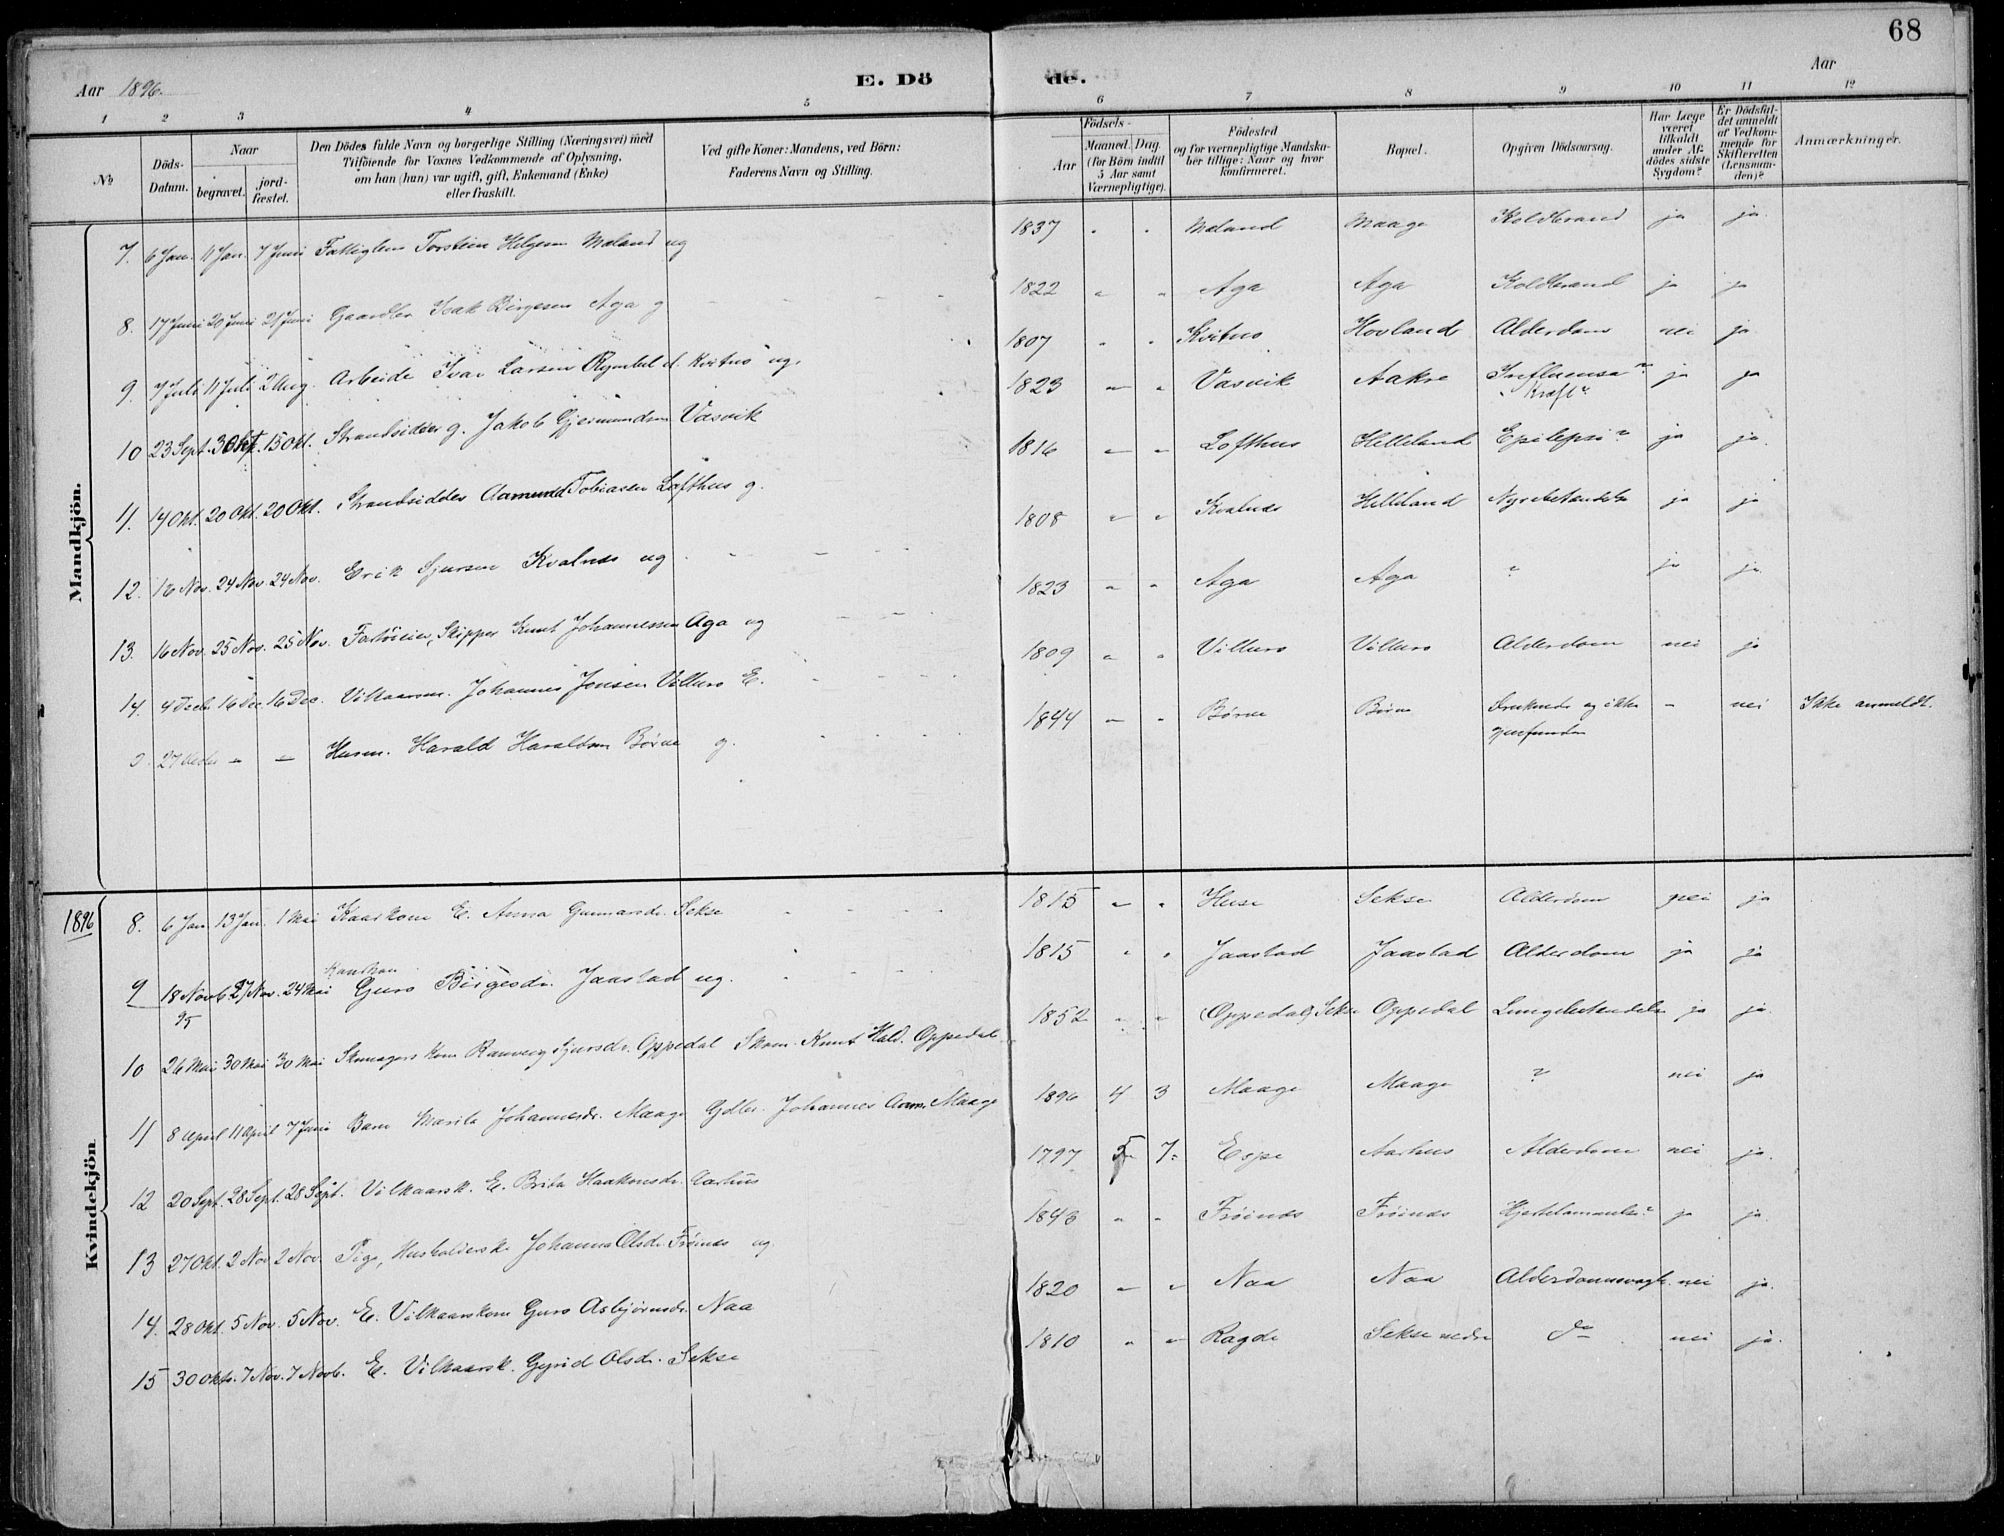 68
Aar 1896. E. Dö de. Aar
1 2 3 4 5 6 7 8 9 10 11 12
No Döds-Datum. Naar begravet. jord-fæstet. Den Dödes fulde Navn og borgerlige Stilling (Næringsvei) med Tilföiende for Voxnes Vedkommende af Oplysning, om han (hun) var ugift, gift, Enkemand (Enke) eller fraskilt. Ved gifte Koner: Mandens, ved Börn: Faderens Navn og Stilling. Födsels- Aar Maaned. Dag. (for Börn indtil 5 Aar samt Værnepligtige). Födested og for værnepligtige Mandska-ber tillige: Naar og hvor konfirmeret. Bopæl. Opgiven Dödsaarsag. Har Læge været tilkaldt under Af-dödes sidste Sygdom? Er Dödsfal-det anmeldt af Vedkom-mende for Skifteretten (Lensman-den)? Anmærkninger.
Mandkjön.
7. 6 Jan. 11 Jan. 7 Juni Fattiglem Torstein Helgesen Maland ug 1837 " " Maland Maage Koldbrand ja ja.
8. 17 Juni 20 Juni 21 Juni Gaardbr. Isak Birgesen Aga g 1822 " " Aga Aga Koldbrand ja ja
9 7 Juli 11 Juli 2 Aug. Arbeide Ivar Larsen Kvitno ug. 1807 " " Kvitno Hovland Alderdom nei ja
10 23 Sept. 3 Okt. 15 Okt. Strandsidder g. Jakob Gjermundsen Vasvik 1823 " " Vasvik Aakre Influensa? Kræft? ja ja
11. 14 Okt. 20 Okt. 20 Okt. Strandsidder Aamund Tobiasen Lofthus g. 1816 " " Lofthus Helleland Epilepsi? ja ja.
12. 16 Nov. 24 Nov. 24 Nov. Erik Sjursen Kvalnes ug. 1808 " " Kvalnes Helleland Nyrebetændelse ja ja
13. 16 Nov. 25 Nov. 25 Nov. Fartöieier, Skipper Knut Johannessen Aga ug 1823 " " Aga Aga ? ja ja.
14. 4 Decb. 16 Dec. 16 Dec. Vilkaarsm. Johannes Jonsen Villuro E. 1809 " " Villuro Villuro Alderdom nei ja
27 " " Husm. Harald Haraldsen Börve g. 1844 " " Börve Börve Druknede og ikke gjenfunden – nei Ikke anmeldt.
1896
Kvindekjön
8. 6 Jan. 13 Jan. 1 Mai Kaarkone E. Anna Gunnarsdr. Sekse 1815 " " Huse Sekse Alderdom nei ja
9 18 Novb. 95 27 Nov. 24 Mai Kaarkone Guro Birgesdr. Jaastad ug. 1815 " " Jaastad Jaastad Alderdom ja ja
10 26 Mai 30 Mai 30 Mai Skomagers kone Ranveig Sjursdr. Oppedal Skom. Knut Hald. Oppedal 1852 " " (Oppedal) Sekse Oppedal Lungebetændelse ja ja.
11 8 April 11 April 7 Juni Barn Marita Johannesdr. Maage Gdbr. Johannes Aam. Maage 1896 4 3 Maage Maage ? nei ja
12 20 Sept. 28 Sept. 28 Sept. Vilkaarsk. E. Brita Haakonsdr. Aarhus 1797 5 7 Espe Aarhus Alderdom nei ja.
13 27 Okt. 2 Nov. 2 Nov. Pige, Husholderske Johanna Olsdr. Fröines ug 1843 " " Fröines Fröines Hjertelammelse? ja ja.
14. 28 Okt. 5 Nov. 5 Nov. E. Vilkaarskone Guro Asbjörnsdr. Naa 1820 " " Naa Naa Alderdomssvagh. nei ja.
15 30 Okt. 7 Nov. 7 Novb. E. Vilkaarsk. Gyrid Olsdr. Sekse 1810 " " Ragde Sekse nedre do nei ja.